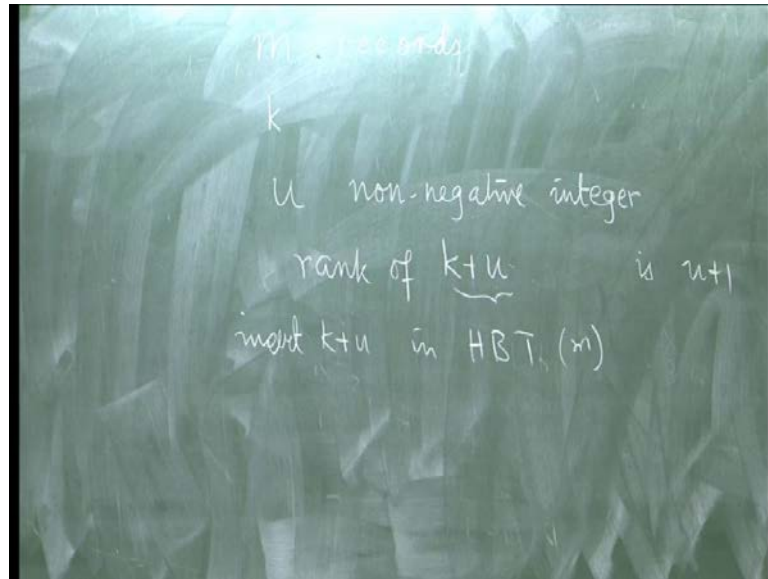 m records
k
u non-negative integer
rank of k+u is u+1
insert k+u in HBT (m)